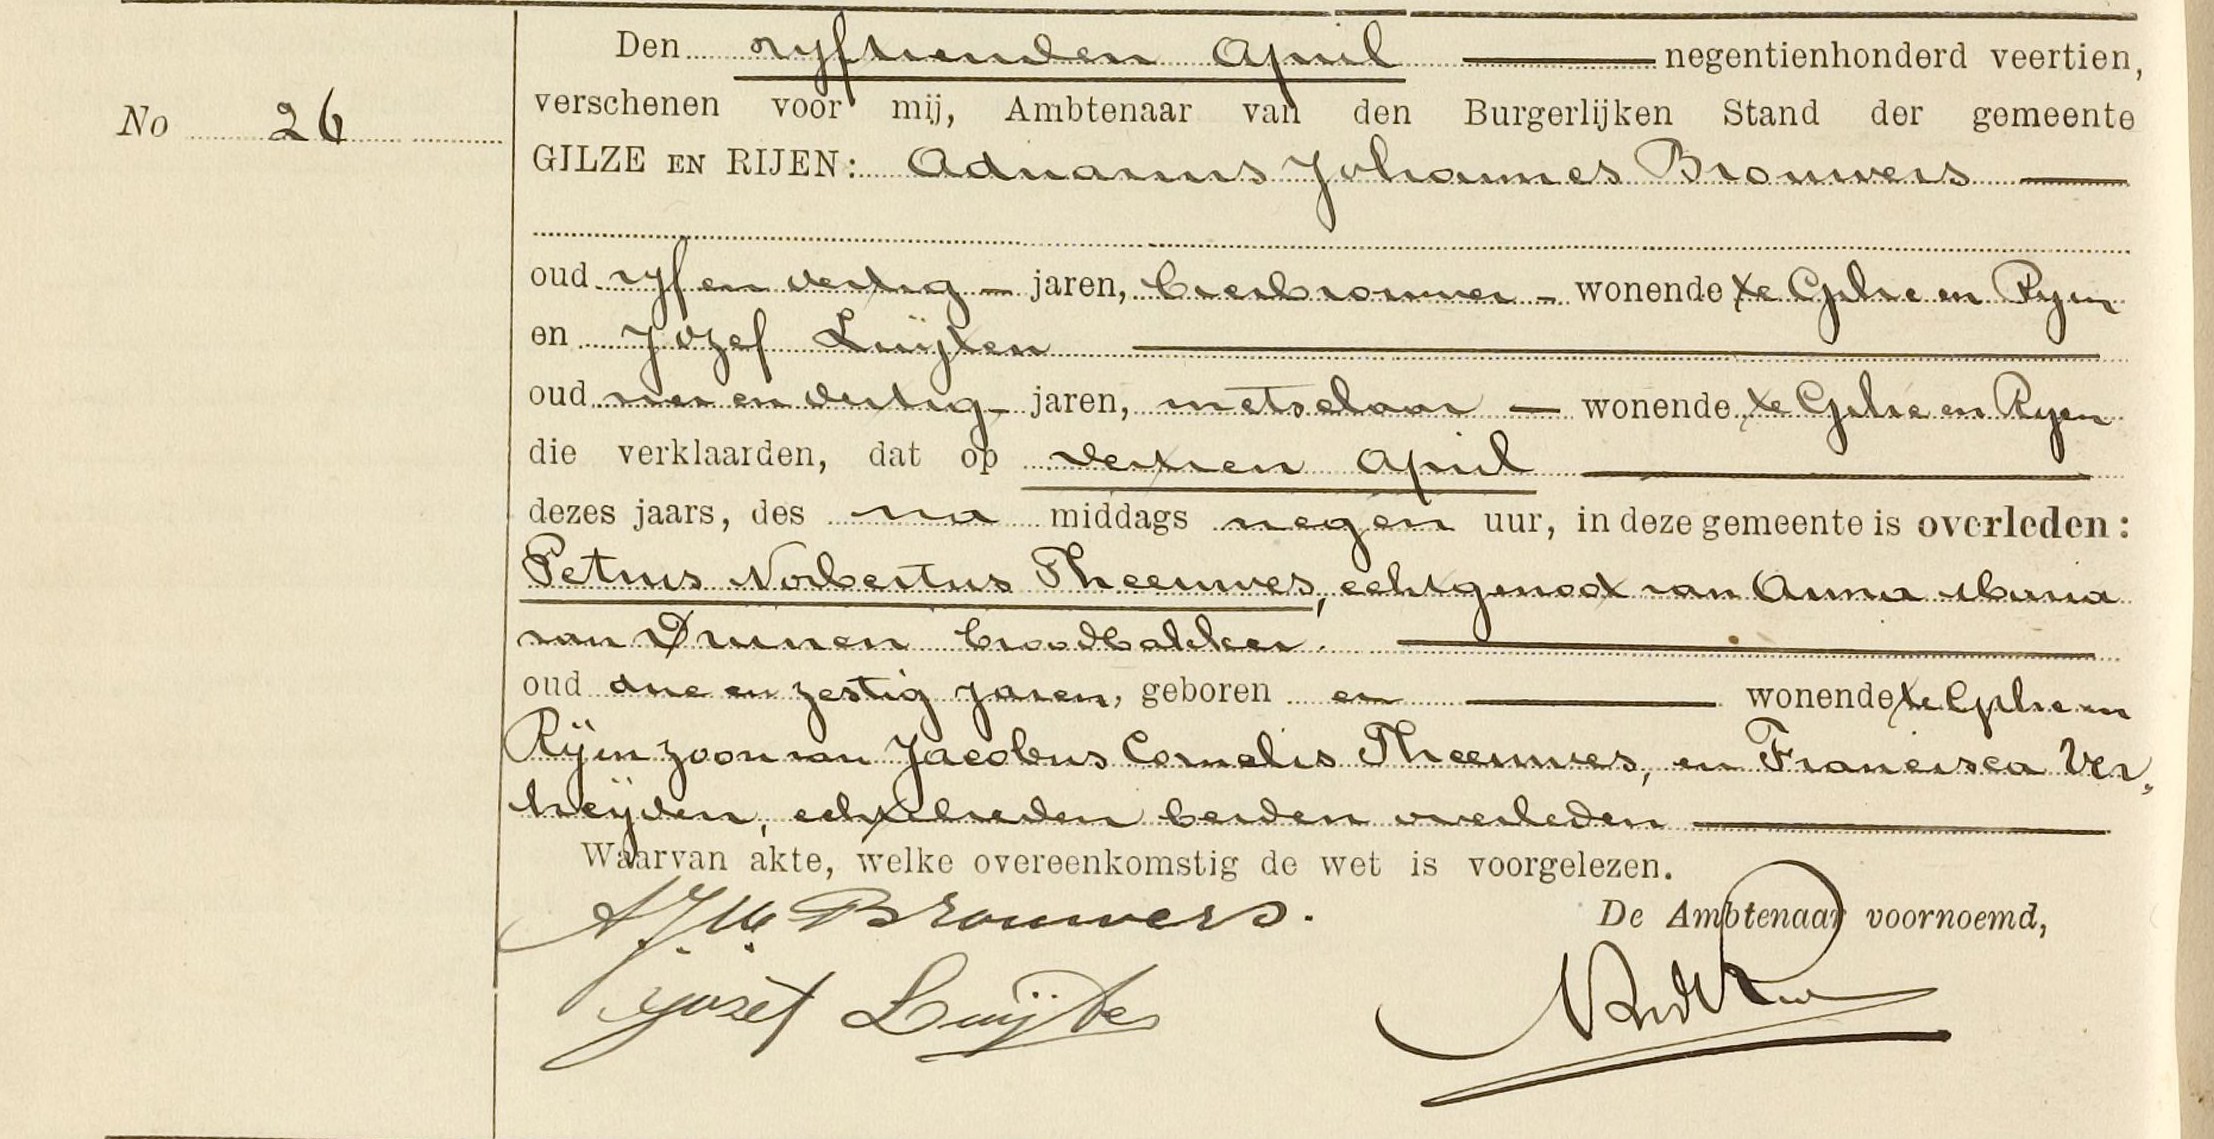 Den vijftienden April negentienhonderd veertien,
No 26
verschenen voor mij, Ambtenaar van den Burgerlijken Stand der gemeente
GILZE EN RIJEN: Adrianus Johannes Brouwers
oud vijf en dertig jaren, bierbrouwer wonende te Gilze en Rijen
en Jozef Luijten
oud vier en dertig jaren, metselaar wonende te Gilze en Rijen
die verklaarden, dat op dertien April
dezes jaars, des na middags negen uur, in deze gemeente is overleden:
Petrus Norbertus Theeuwes, echtgenoot van Anna Maria
van Drunen broodbakker.
oud drie en zestig jaren, geboren en wonende te Gilze en
Rijen zoon van Jacobus Cornelis Theeuwes, en Francisca Ver„
heijden, echtelieden beiden overleden
Waarvan akte, welke overeenkomstig de wet is voorgelezen.
A.J.M. Brouwers.
De Ambtenaar voornoemd,
Jozef Luijten